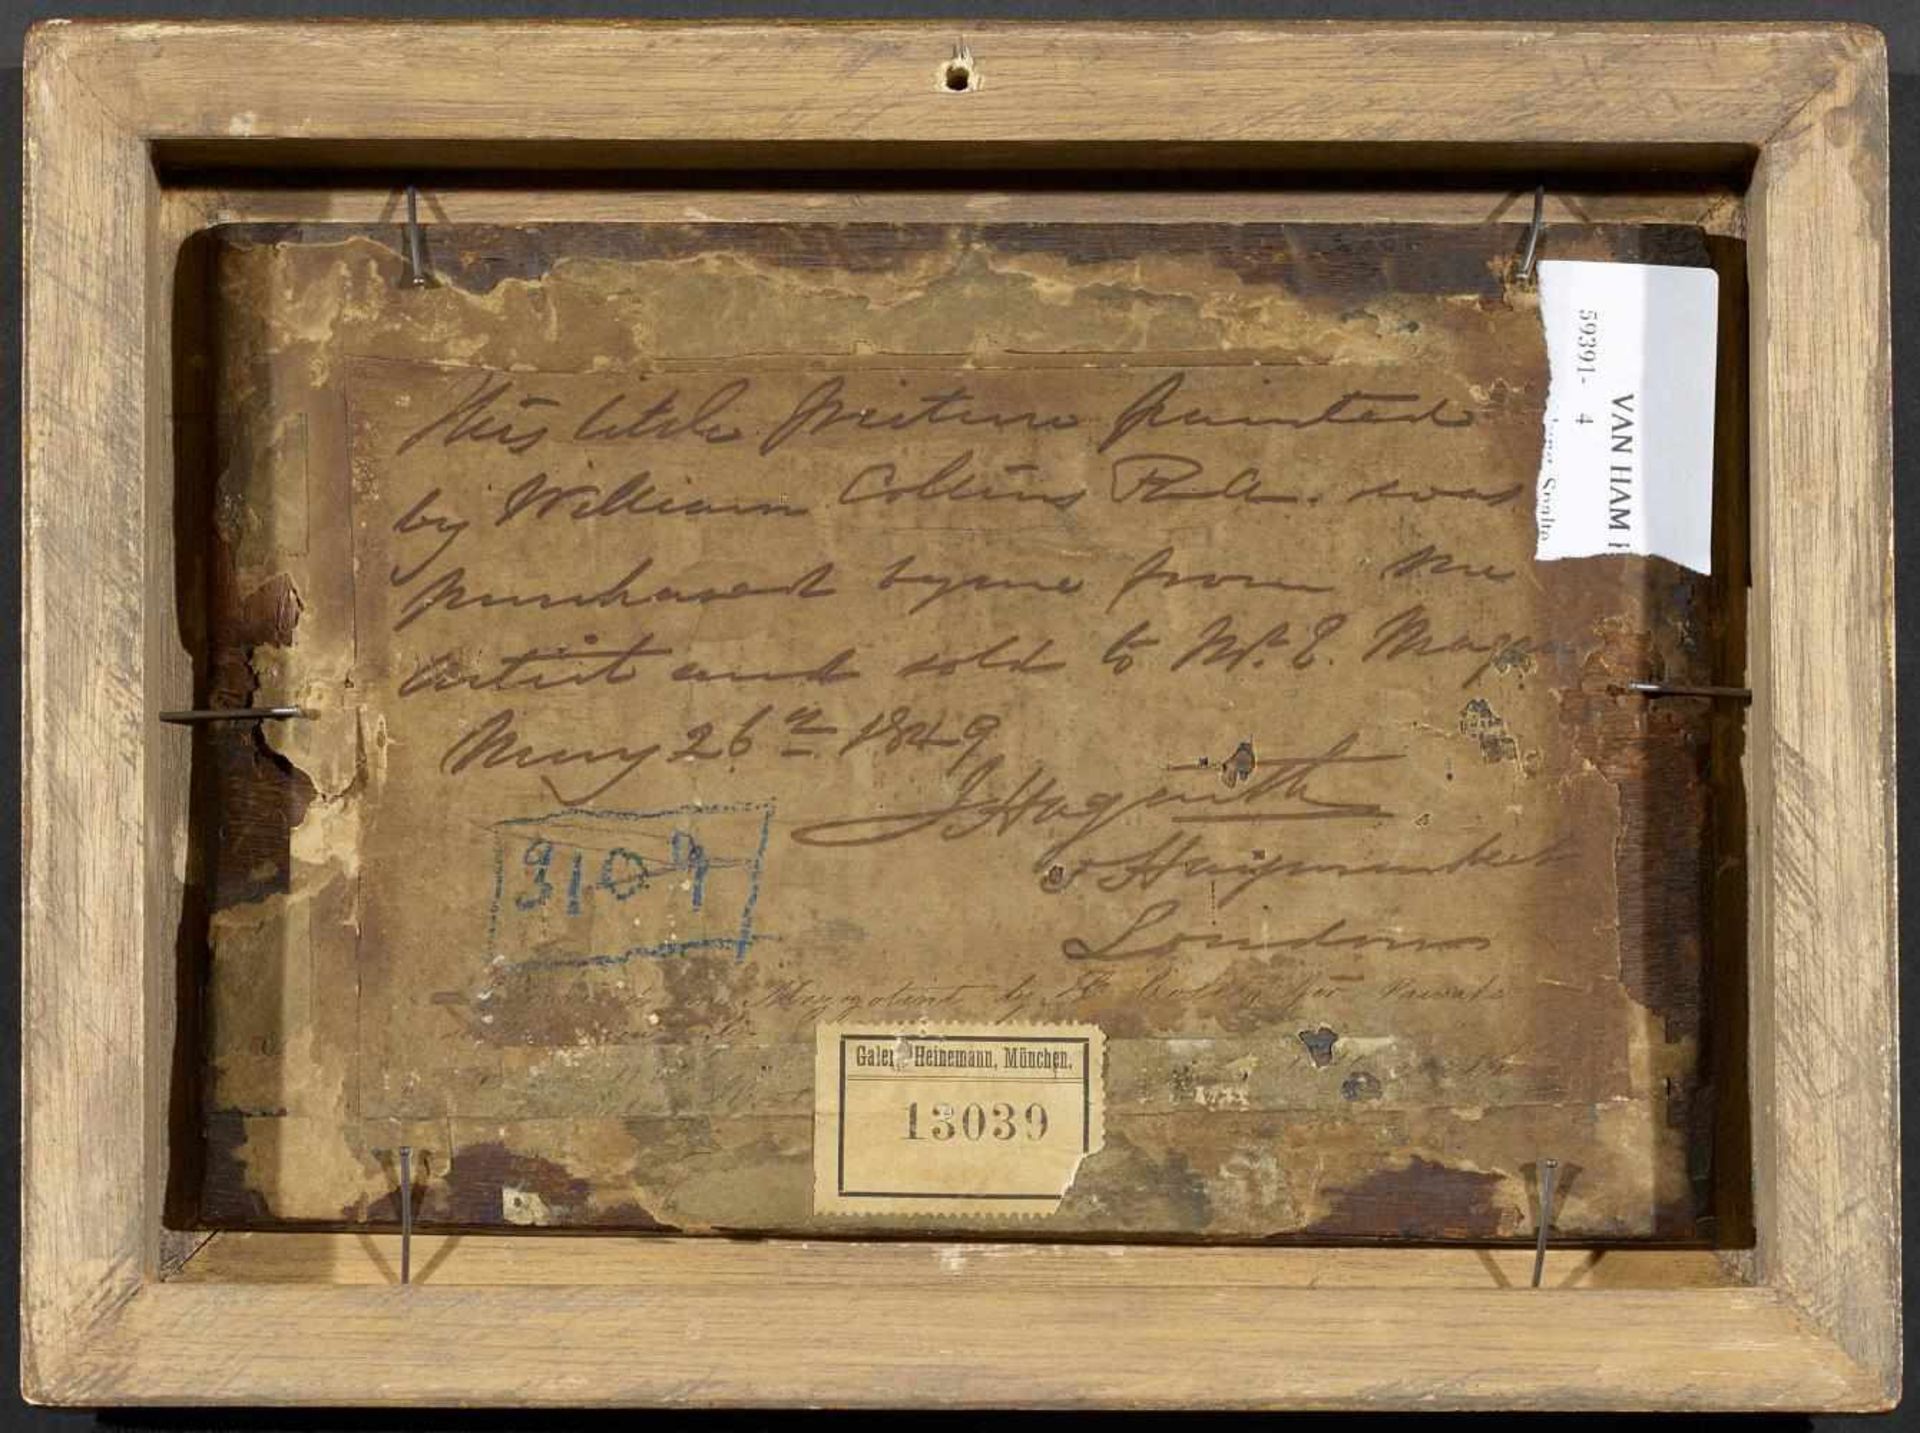 This little picture painted
by William Collins R.A. was
purchased by me from the
artist and sold to Mr. E. Magn
May 26th 1849
J Hogarth
5 Haymarket
London
3109
in Mezzotint by for Private
Galer Heinemann, München.
13039
VAN HAM
59391- 4